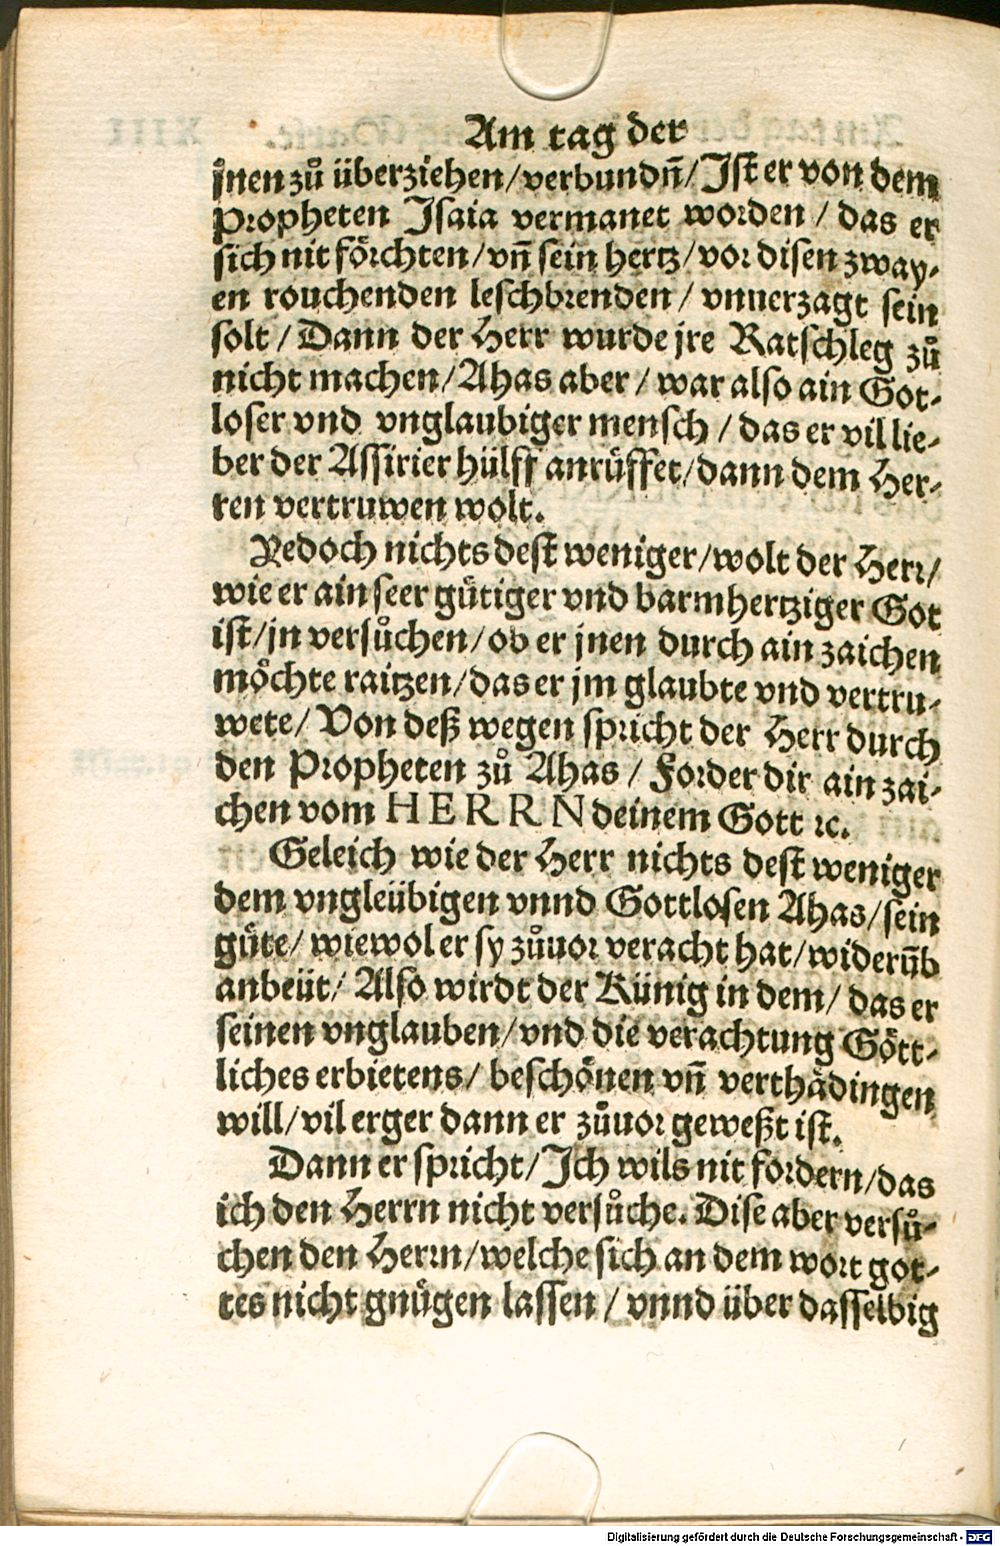 Am tag der
jnen zů überziehen/verbundñ/Ist er von dem
Propheten Isaia vermanet worden / das er
sich nit förchten/vñ sein hertz/vor disen zway-
en rouchenden leschbrenden / vnuerzagt sein
solt / Dann der Herr wurde jre Ratschleg zů
nicht machen/Ahas aber / war also ain Got-
loser vnd vnglaubiger mensch / das er vil lie-
ber der Assirier hülff anrüffet/dann dem Her-
ren vertruwen wolt.
Yedoch nichts dest weniger/wolt der Herr/
wie er ain seer gütiger vnd barmhertziger Got
ist/jn versůchen/ob er jnen durch ain zaichen
möchte raitzen/das er jm glaubte vnd vertru-
wete/ Von deß wegen spricht der Herr durch
den Propheten zů Ahas / Forder dir ain zai-
chen vom HERRN deinem Gott ꝛc.
Geleich wie der Herr nichts dest weniger
dem vngleübigen vnnd Gottlosen Ahas/sein
güte/ wiewol er sy zůuor veracht hat/widerũb
anbeüt/ Also wirdt der Künig in dem/ das er
seinen vnglauben/vnd die verachtung Gött-
liches erbietens/ beschönen vñ verthädingen
will/vil erger dann er zůuor geweßt ist.
Dann er spricht/Ich wils nit fordern/das
ich den Herrn nicht versůche. Dise aber versů-
chen den Herrn/welche sich an dem wort got-
tes nicht gnügen lassen / vnnd über dasselbig
Digitalisierung gefördert durch die Deutsche Forschungsgemeinschaft - DFG